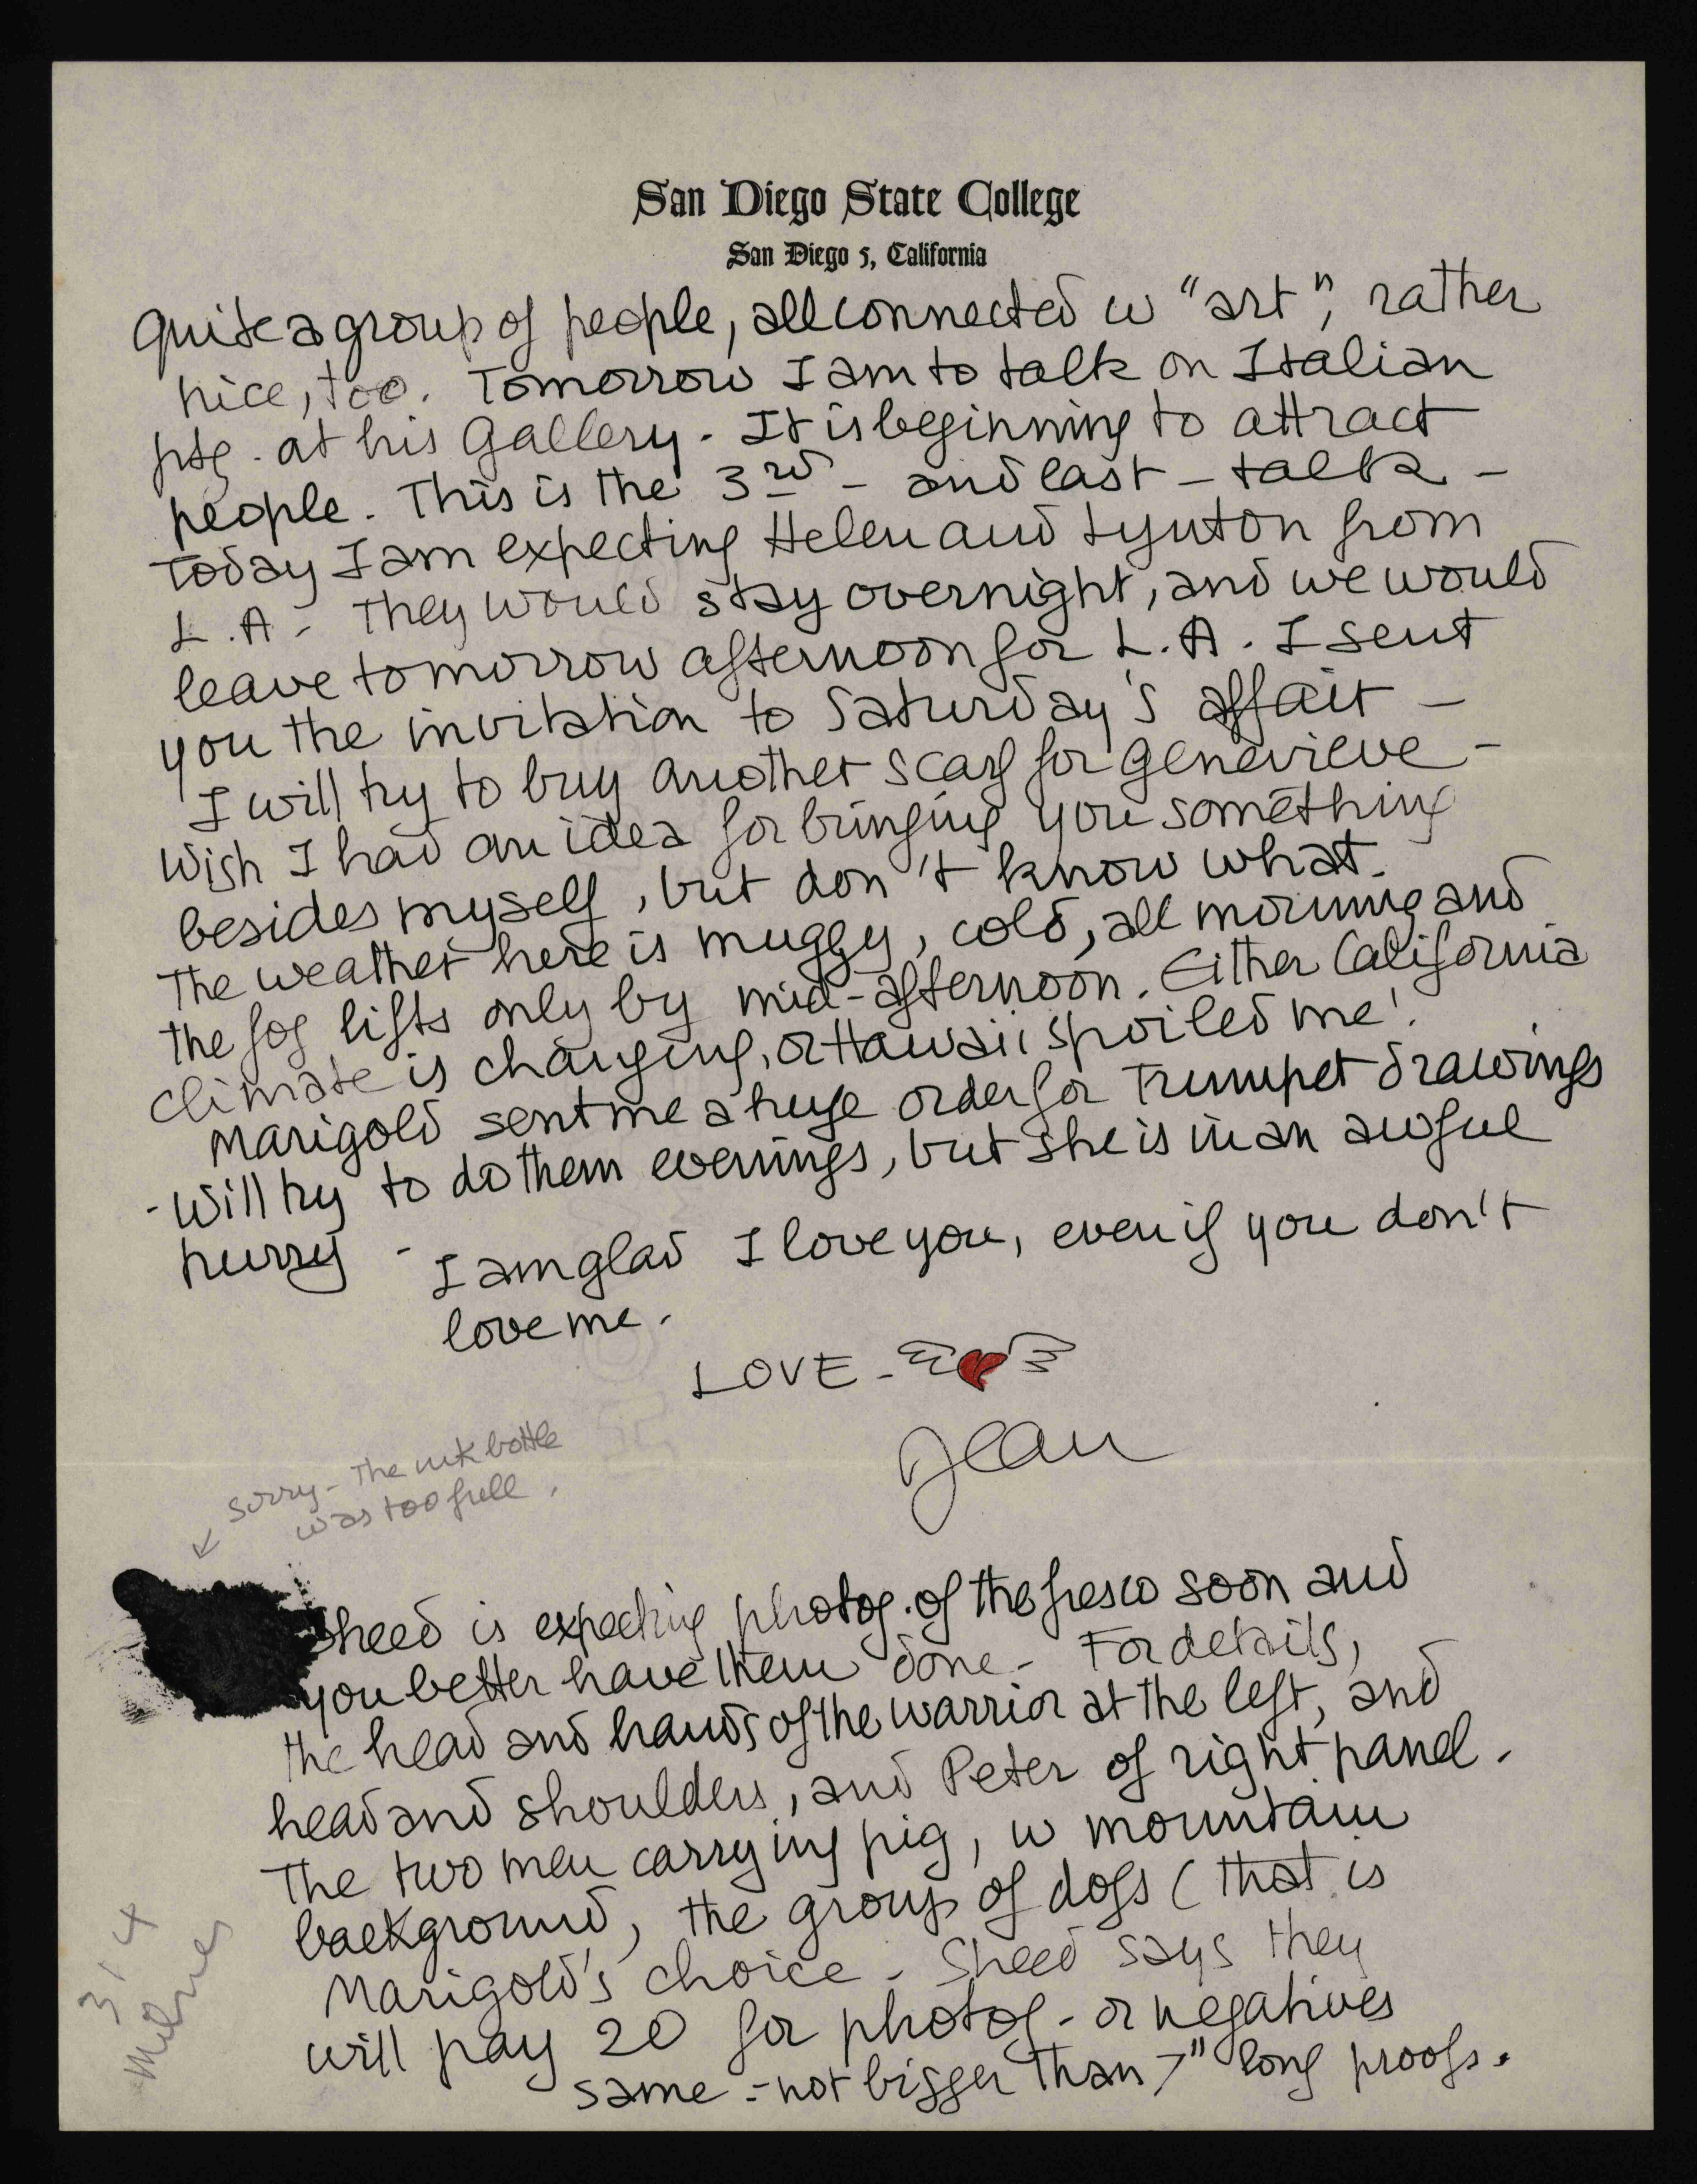 San Diego State College
San Diego 5, California
quite a group of people, all connected w "art", rather
nice, too. Tomorrow I am to talk on Italian
ptg. at his Gallery. It is beginning to attract
people. This is the 3rd - and last - talk -
Today I am expecting Helen and Lynton from
L.A - They would stay overnight, and we would
leave tomorrow afternoon for L.A. I sent
you the invitation to Saturday's affair -
I will try to buy another scarf for Genevieve -
Wish I had an idea for bringing you something
besides myself, but don't know what.
The weather here is muggy, cold, all morning and
the fog lifts only by mid-afternoon. Either California
climate is changing, or Hawaii spoiled me!
Marigold sent me a huge order for Trumpet drawings
- Will try to do them evenings, but she is in an awful
hurry - I am glad I love you, even if you don't
love me.
LOVE -
Jean
sorry - The ink bottle
was too full.
Sheed is expecting photog. of the fresco soon and
you better have them done - For details,
the head and hands of the warrior at the left, and
head and shoulders, and Peter of right panel.
The two men carrying pig, w mountain
background, the group of dogs (that is
Marigold's choice - Sheed says they
will pay 20 for photog - or negatives
same - not bigger than 7" long proofs.
314
Milnes